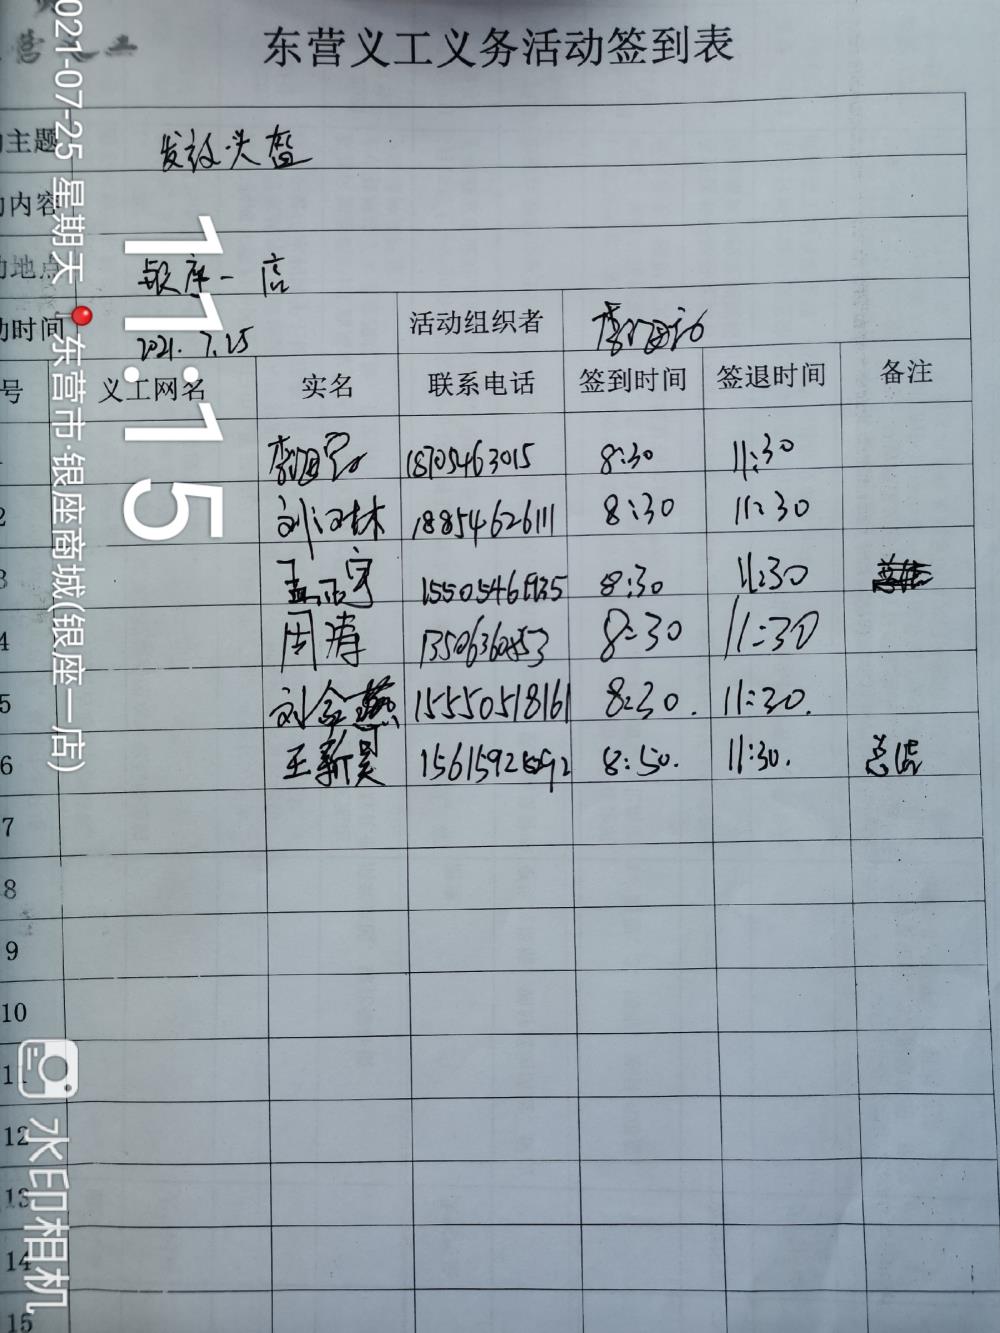 东营义工义务活动签到表
主题 发放头盔
内容
地点 银座一店
时间 2021.7.25 活动组织者
号 义工网名 实名 联系电话 签到时间 签退时间 备注
18705463015 8:30 11:30
2 18854626111 8:30 11:30
3 8:30 11:30
4 周涛 8:30 11:30
5 刘金燕 15550518161 8:30. 11:30.
6 王新昊 8:50. 11:30. 总结
7
8
9
10
11
12
13
14
15
2021-07-25 星期天
11:15
东营市·银座商城(银座一店)
水印相机